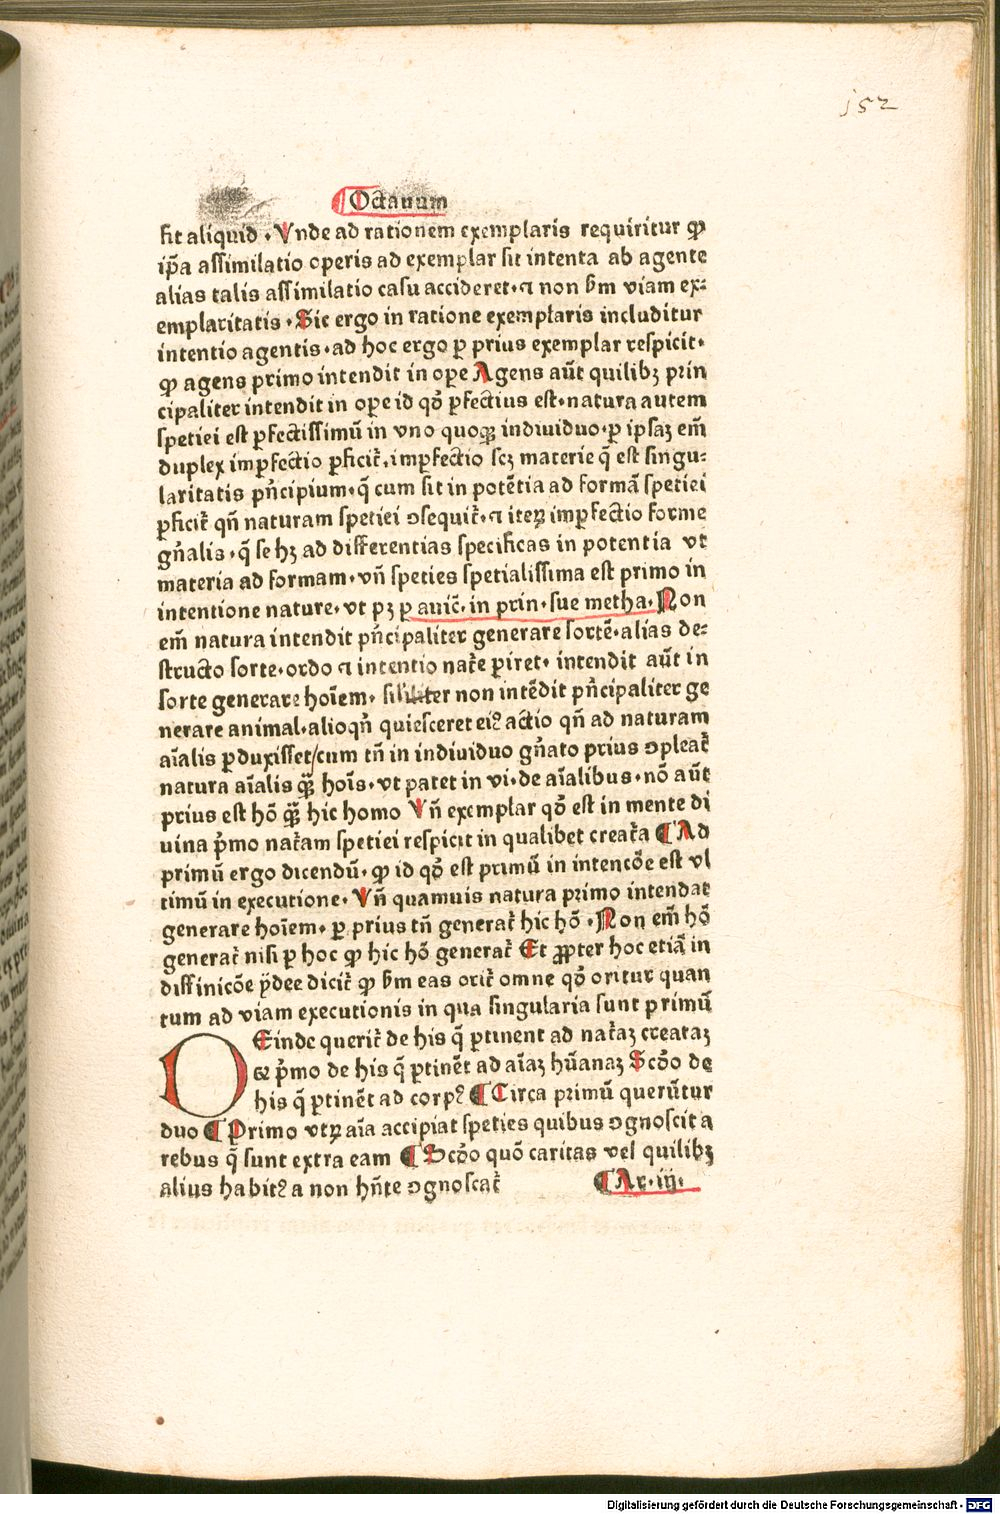 152
Octauum
sit aliquid . Vnde ad rationem exemplaris requiritur ꝙ
ip̄a assimilatio operis ad exemplar sit intenta ab agente
alias talis assimilatio casu accideret. ⁊ non bm viam ex⸗
emplaritatis . Sic ergo in ratione exemplaris includitur
intentio agentis . ad hoc ergo ꝑ prius exemplar respicit.
ꝙ agens primo intendit in oꝑe Agens aūt quilibꝫ prin
cipaliter intendit in oꝑe id qð ꝑfectius est . natura autem
spetiei est ꝑfectissimū in vno quoqꝫ indiuiduo . ꝑ ipsaꝫ em̄
duplex imꝑfectio ꝑficit̄ . imꝑfectio scꝫ materie q̄ est singu⸗
laritatis pn̄cipium . q̄ cum sit in potētia ad formā spetiei
ꝑficit̄ qn̄ naturam spetiei ꝯsequit̄ . ⁊ iteꝝ imꝑfectio forme
gn̄alis . q̄ se hꝫ ad differentias specificas in potentia vt
materia ad formam . vn̄ speties spetialissima est primo in
intentione nature . vt pꝫ ꝑ auic̄ . in prin . sue metha . Non
em̄ natura intendit pn̄cipaliter generare sortē . alias de⸗
structo sorte . ordo ⁊ intentio nat̄e ꝑiret . intendit aūt in
sorte generare hoīem . sililiter non intēdit pn̄cipaliter ge
nerare animal . alioqn̄ quiesceret eiꝰ actio qn̄ ad naturam
aīalis ꝑduxisset/cum tn̄ in indiuiduo gn̄ato prius ꝯpleat̄
natura aīalis qꝫ̄ hoīs . vt patet in vi . de aīalibus . nō aūt
prius est hō qꝫ̄ hic homo Vn̄ exemplar qð est in mente di
uina p̄mo nat̄am spetiei respicit in qualibet creat̄a ¶ Ad
primū ergo dicendū . ꝙ id qð est primū in intencōe est vl
timū in executione . Vn̄ quamuis natura primo intendat
generare hoīem . ꝑ prius tn̄ generat̄ hic hō . Non em̄ hō
generat̄ nisi ꝑ hoc ꝙ hic hō generat̄ Et ꝓpter hoc etiā in
diffinicōe ydee dicit̄ ꝙ bm eas orit̄ omne qð oritur quan
tum ad viam executionis in qua singularia sunt primū
DEinde querit̄ de his q̄ ꝑtinent ad nat̄aꝫ creataꝫ
Et p̄mo de his q̄ ꝑtinēt ad aīaꝫ hūanaꝫ Scðo de
his q̄ ꝑtinēt ad corpꝰ ¶ Circa primū querūtur
duo ¶ Primo vtꝝ aīa accipiat speties quibus ꝯgnoscit a
rebus q̄ sunt extra eam ¶ Scðo quō caritas vel quilibꝫ
alius habitꝰ a non hn̄te ꝯgnoscat̄ ¶ Ar . iij .
Digitalisierung gefördert durch die Deutsche Forschungsgemeinschaft - DFG